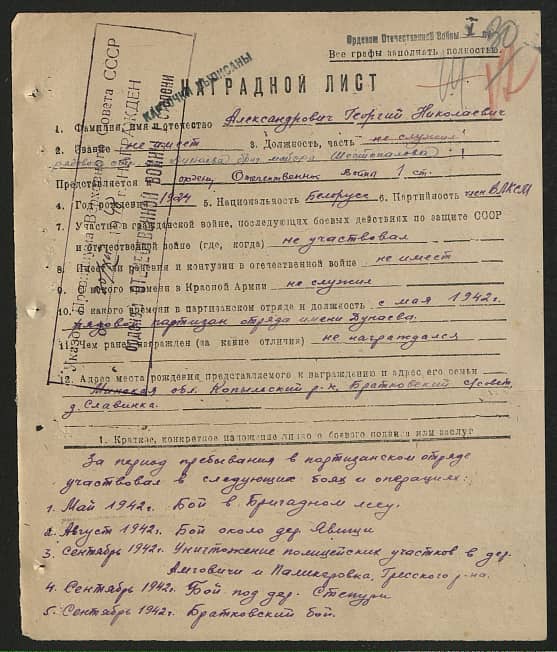 Орденом Отечественной Войны I
Все графы заполнять полностью.
КАРТОЧКИ ВЫПИСАНЫ
НАГРАДНОЙ ЛИСТ
Указом Президиума Верховного Совета СССР
НАГРАЖДЕН
ОРДЕНОМ ОТЕЧЕСТВЕННОЙ ВОЙНЫ степени
1. Фамилия, имя и отчество Александрович Георгий Николаевич
2. Звание не имеет 3. Должность, часть не служил
рядовой отр. Дунаева бриг майора Шестопалова
Представляется ордену Отечественная война 1 ст.
4. Год рождения 1924 5. Национальность Белорус 6. Партийность член ВЛКСМ
7. Участие в гражданской войне, последующих боевых действиях по защите СССР
и отечественной войне (где, когда) не участвовал
8. Имеет ли ранения и контузии в отечественной войне не имеет
9. С какого времени в Красной Армии не служил
10. С какого времени в партизанском отряде и должность с мая 1942г.
рядовой партизан отряда имени Дунаева.
11. Чем ранее награжден (за какие отличия) не награждался
12. Адрес места рождения представляемого к награждению и адрес его семьи
Минская обл. Копыльский р-н, Братковский с/совет,
д. Славинка.
1. Краткое, конкретное изложение личного боевого подвига или заслуг
За период пребывания в партизанском отряде
участвовал в следующих боях и операциях:
1. Май 1942г. Бой в Бригадном лесу.
2. Август 1942г. Бой около дер. Явищи
3. Сентябрь 1942г. Уничтожение полицейских участков в дер.
Амговичи и Паликаровка, Гресского р-на.
4. Сентябрь 1942г. Бой под дер. Стецури
5. Сентябрь 1942г. Братковский бой.